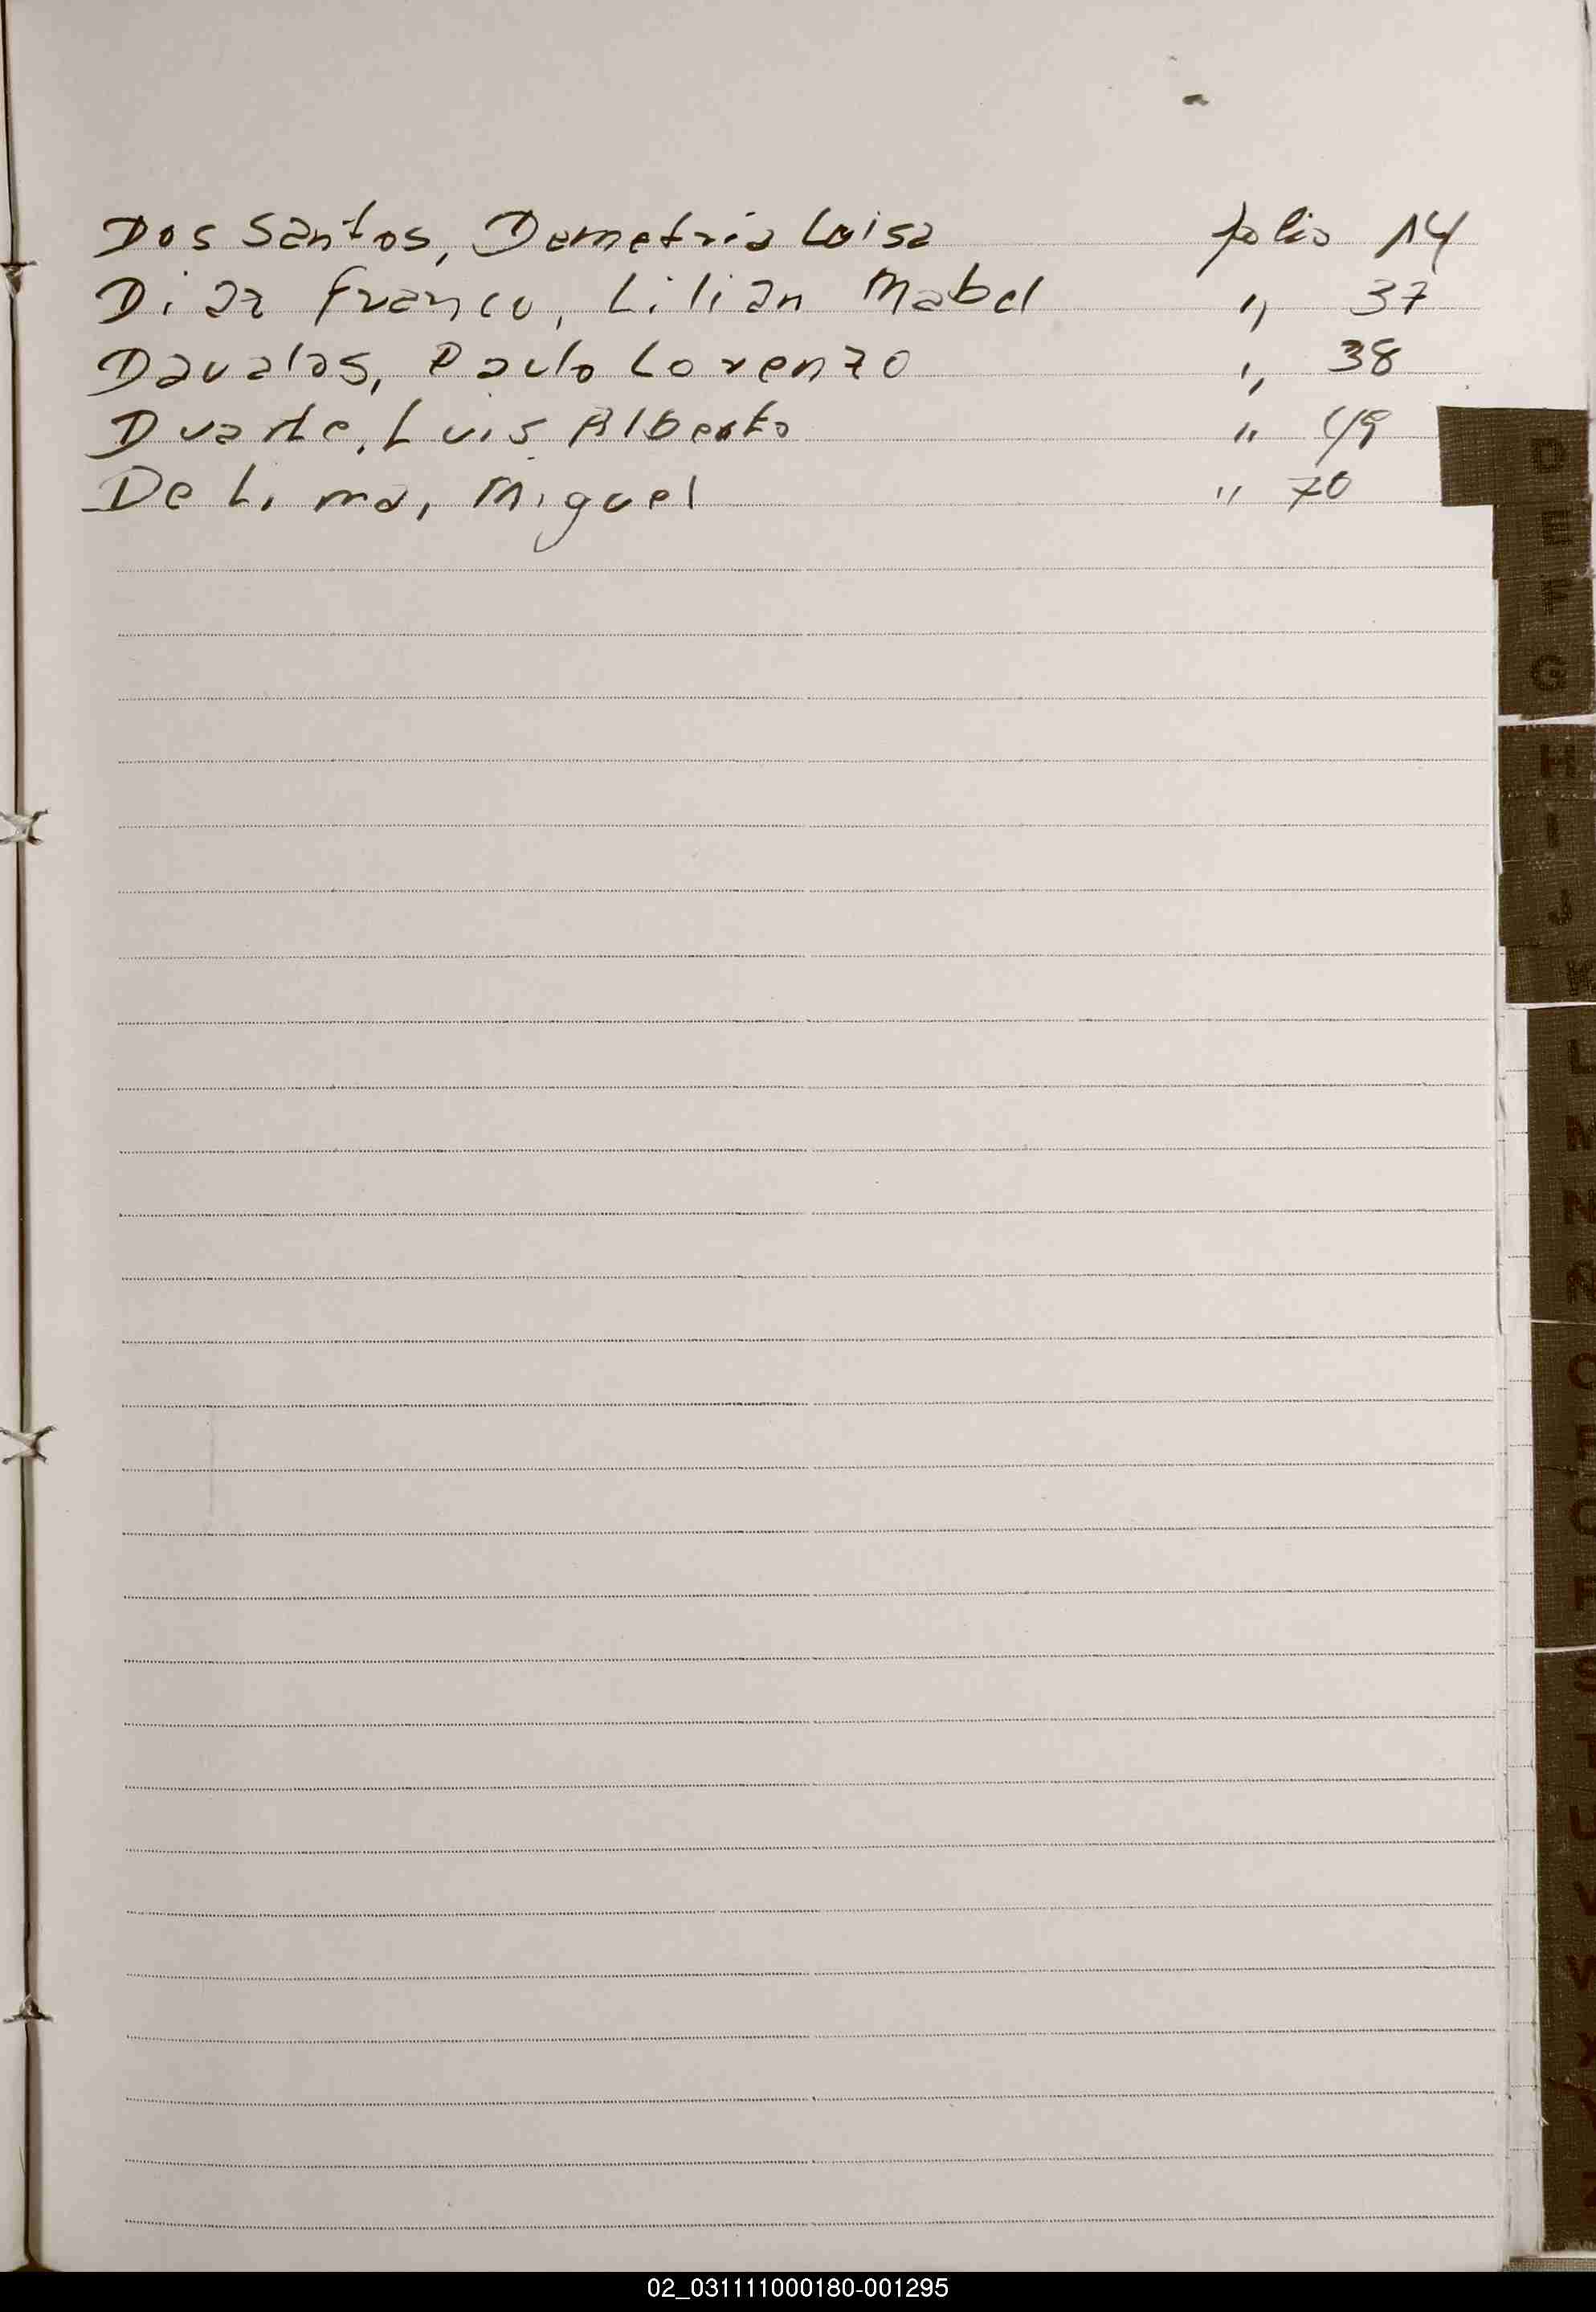 Dos Santos, Demetria Luisa folio 14
Diaz Franco, Lilian Mabel " 37
Davalos, Paulo Lorenzo " 38
Duarte, Luis Alberto " 49
De Lima, Miguel " 70
D
E
F
G
H
I
J
K
L
02_031111000180-001295